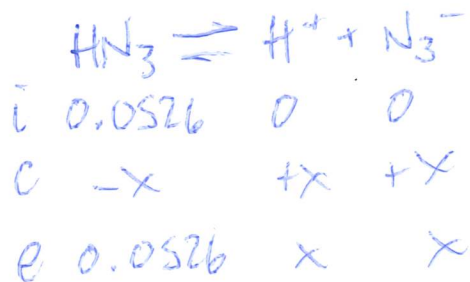 HN₃ ⇌ H⁺ + N₃⁻
i 0.0526 0 0
c -x +x +x
e 0.0526 x x